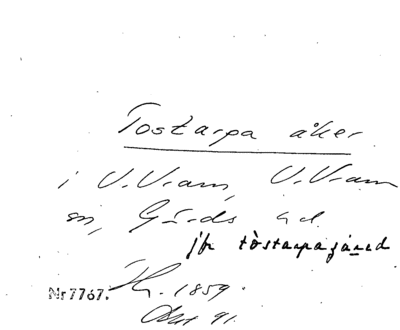 Tostarpa åker
i V. Vram, V. Vram
sn, Gärds hd.
jfr tòstarpajæred
Nr 7767. 1859.
91.